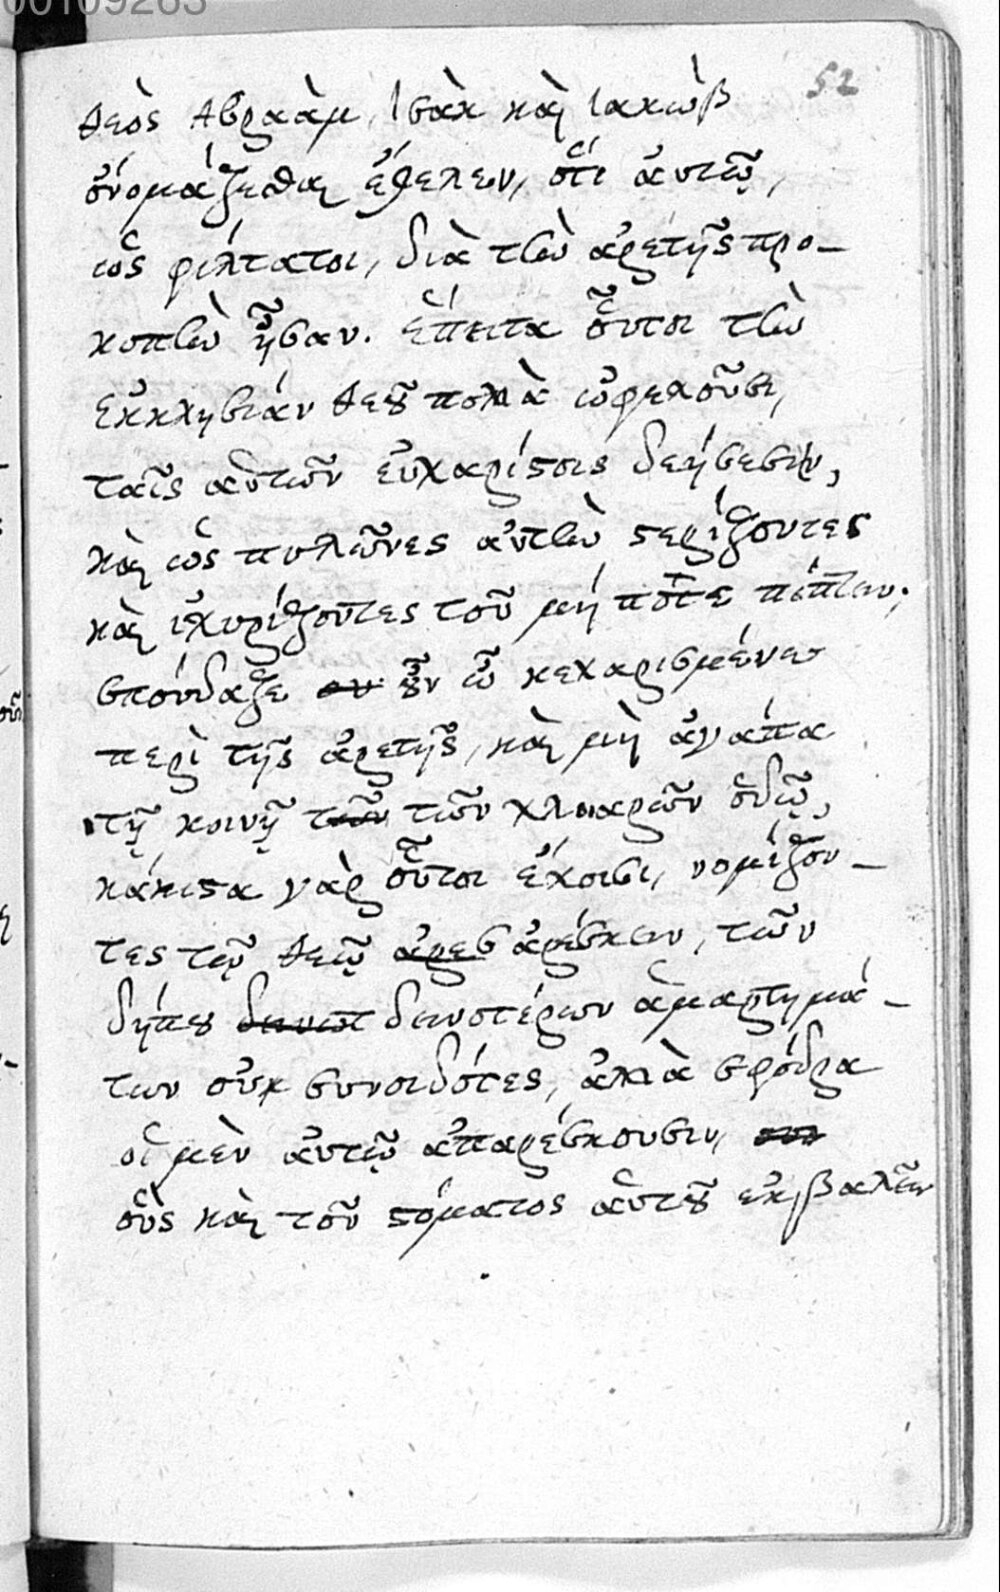 00109263
52
θεὸς Αβραὰμ, Ισὰκ καὶ Ιακὼβ
ὀνομάζεσθαι ἔθελεν, ὅτι ἀυτῷ,
ὡς φίλτατοι, διὰ τὴν ἀρετῆς προ-
κοπὴν ἦσαν. ἔπειτα οὗτοι τὴν
ἐκκλησιάν θεοῦ πολλὰ ὠφελοῦσι,
ταῖς αὐτῶν εὐχαρίστοις δεήσεσιν,
καὶ ὡς πυλῶνες ἀυτὴν στερίζοντες
καὶ ἰχυρίζοντες τοῦ μή ποτε πίπτειν;
σπούδαζε οὖν ὦ κεχαρισμένε
περὶ τῆς ἀρετῆς, καὶ μὴ ἀγάπα
τῇ κοινῇ τῶν τῶν χλιαρῶν ὁδῷ,
κάκιστα γὰρ οὗτοι ἔχοισι, νομίζον-
τες τῷ θεῷ ἀρεσ ἀρέσκειν, τῶν
δήπου δεινοτ δεινοτέρων ἁμαρτημά-
των οὐκ συνοιδότες, ἀλλὰ σφόδρα
οἱ μὲν ἀυτῷ ἀπαρέσκουσιν,
οὓς καὶ τοῦ στόματος ἁυτοῦ εκβαλεῖν